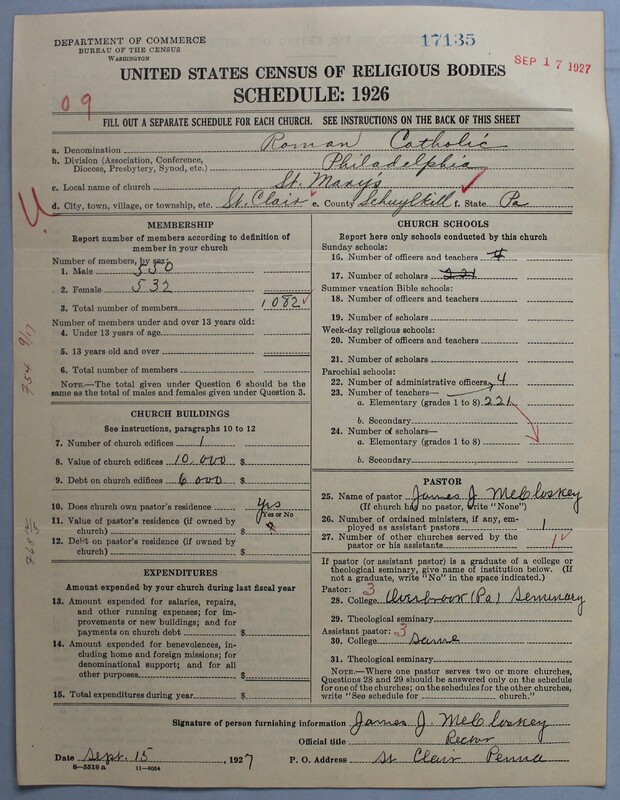 DEPARTMENT OF COMMERCE
BUREAU OF THE CENSUS
WASHINGTON
17135
SEP 17 1927
UNITED STATES CENSUS OF RELIGIOUS BODIES
SCHEDULE: 1926
09
FILL OUT A SEPARATE SCHEDULE FOR EACH CHURCH. SEE INSTRUCTIONS ON THE BACK OF THIS SHEET
a. Denomination Roman Catholic
b. Division (Association, Conference, Diocese, Presbytery, Synod, etc.) Philadelphia
c. Local name of church St. Mary's
d. City, town, village, or township, etc. St. Clair e. County Schuylkill f. State Pa
MEMBERSHIP
Report number of members according to definition of
member in your church
Number of members, by sex:
1. Male 550
2. Female 532
3. Total number of members 1082
Number of members under and over 13 years old:
4. Under 13 years of age
5. 13 years old and over
6. Total number of members
NOTE.—The total given under Question 6 should be the
same as the total of males and females given under Question 3.
754 9/17
CHURCH BUILDINGS
See instructions, paragraphs 10 to 12
7. Number of church edifices 1
8. Value of church edifices 10,000 $
9. Debt on church edifices 6000 $
10. Does church own pastor's residence yes
Yes or No
11. Value of pastor's residence (if owned by
church) $
12. Debt on pastor's residence (if owned by
church) $
EXPENDITURES
Amount expended by your church during last fiscal year
13. Amount expended for salaries, repairs,
and other running expenses; for im-
provements or new buildings; and for
payments on church debt $
14. Amount expended for benevolences, in-
cluding home and foreign missions; for
denominational support; and for all
other purposes $
15. Total expenditures during year $
CHURCH SCHOOLS
Report here only schools conducted by this church
Sunday schools:
16. Number of officers and teachers 4
17. Number of scholars 221
Summer vacation Bible schools:
18. Number of officers and teachers
19. Number of scholars
Week-day religious schools:
20. Number of officers and teachers
21. Number of scholars
Parochial schools:
22. Number of administrative officers 4
23. Number of teachers—
a. Elementary (grades 1 to 8) 221
b. Secondary
24. Number of scholars—
a. Elementary (grades 1 to 8)
b. Secondary
PASTOR
25. Name of pastor James J McCloskey
(If church has no pastor, write "None")
26. Number of ordained ministers, if any, em-
ployed as assistant pastors 1
27. Number of other churches served by the
pastor or his assistants 1
If pastor (or assistant pastor) is a graduate of a college or
theological seminary, give name of institution below. (If
not a graduate, write "No" in the space indicated.)
Pastor: 3
28. College Overbrook (Pa) Seminary
29. Theological seminary
Assistant pastor: 3
30. College same
31. Theological seminary
NOTE.—Where one pastor serves two or more churches,
Questions 28 and 29 should be answered only on the schedule
for one of the churches; on the schedules for the other churches,
write "See schedule for church."
Signature of person furnishing information James J. McCloskey
Official title Rector
Date Sept. 15, 1927 P. O. Address St Clair Penna
8—5518 a 11—9054